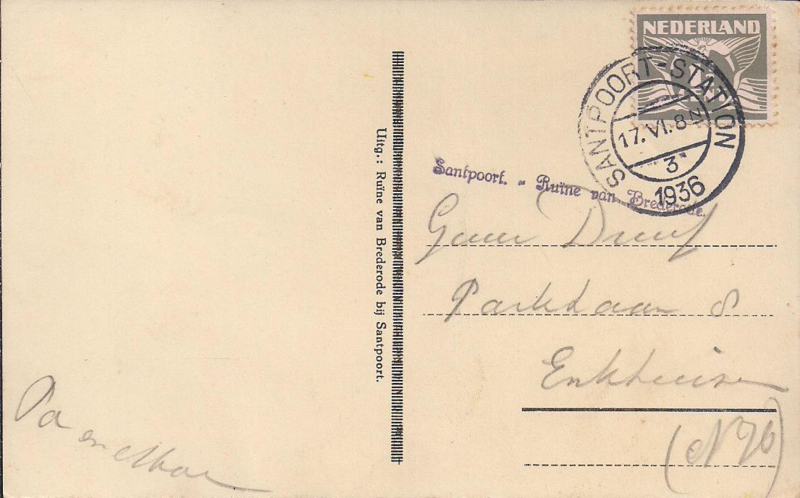 NEDERLAND
SANTPOORT-STATION
17.VI.8
3
1936
Santpoort. - Ruïne van Brederode.
Uitg.: Ruïne van Brederode bij Santpoort.
Parklaan 8
Enkhuizen
Pa en